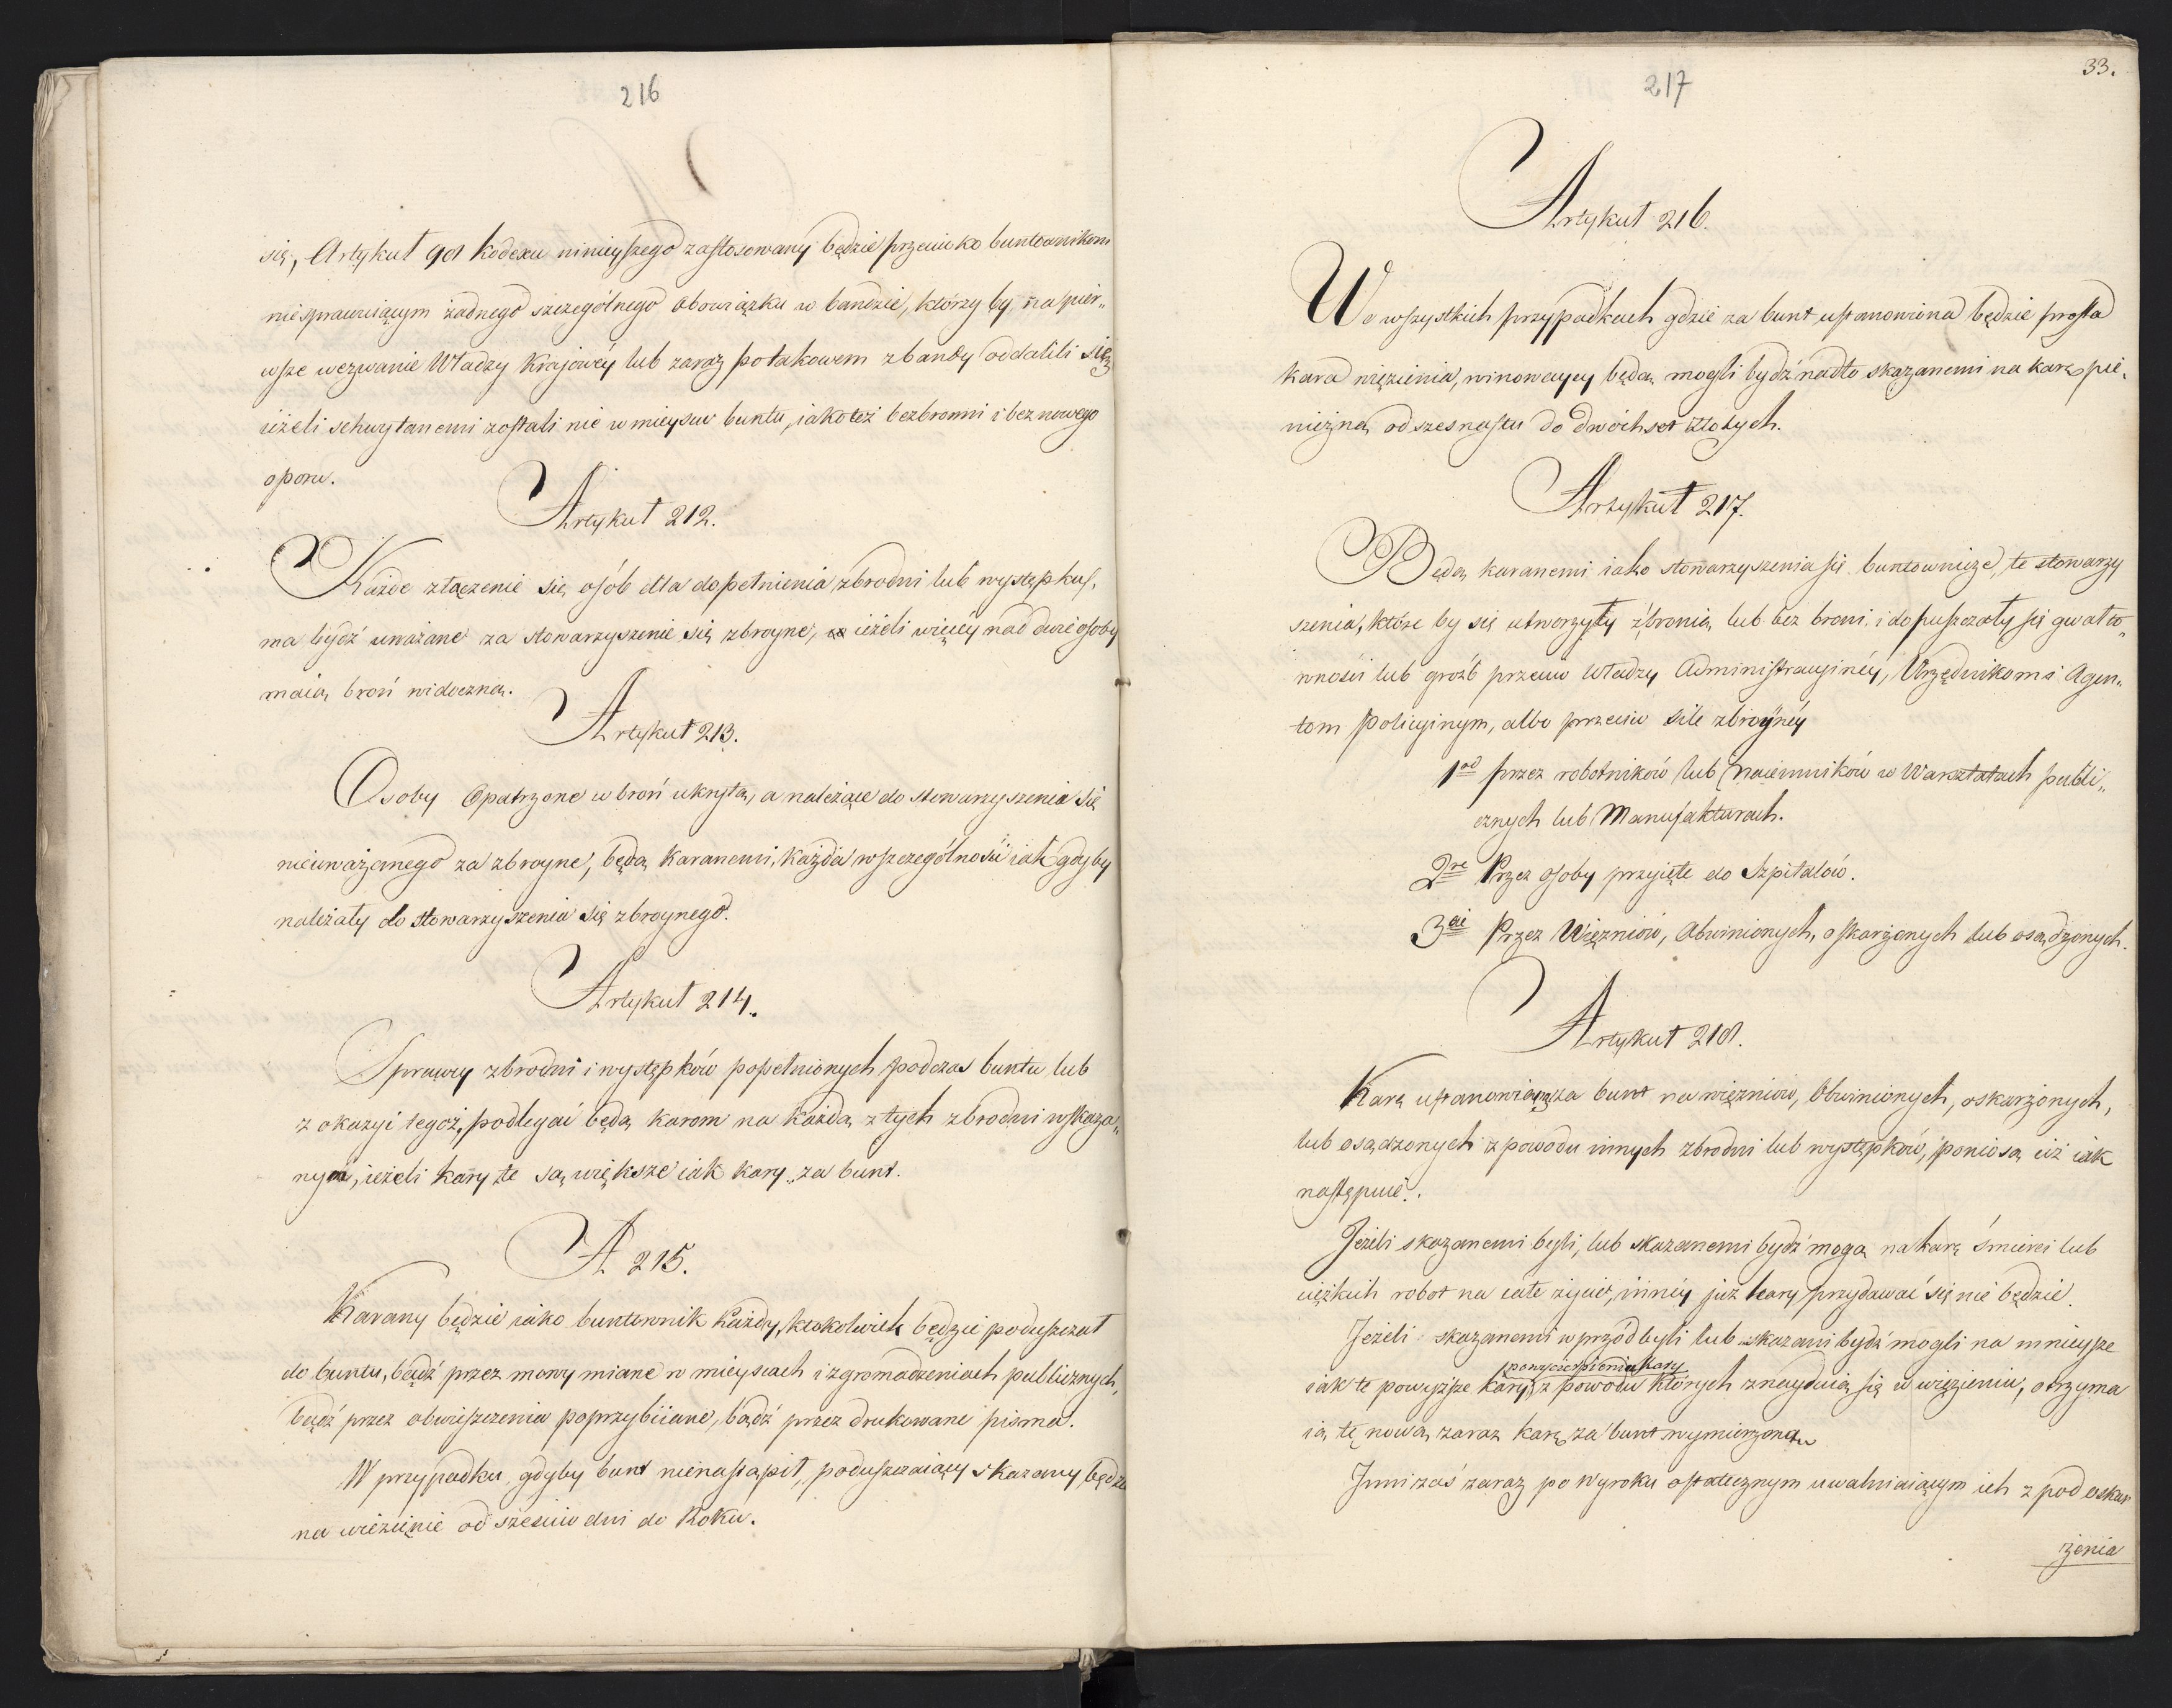 216
się, Artykuł 98 Kodexu ninieyszego zastosowany będzie przeciwko buntownikom
niesprawuiącym żadnego szczególnego obowiązku w bandzie, którzy by na pier„
wsze wezwanie Władzy Krajowéy lub zaraz potakowem z bandy oddalili się,
ieżeli schwytanemi zostali nie w mieyscu buntu, iakoteż bezbronni i bez nowego
oporu.
Artykuł 212.
Każde złączenie się osób dla dopełnienia zbrodni lub występku,
ma bydź uważane za stowarzyszenie się zbroyne, ieżeli więcéy nad dwie osoby
maią broń widoczną.
Artykuł 213.
Osoby Opatrzone w broń ukrytą, a należące do stowarzyszenia się
nieuważanego za zbroyne, będą karanemi, każda wszczególności iak gdyby
należały do stowarzyszenia się zbroynego.
Artykuł 214.
Sprawcy zbrodni i występków popełnionych podczas buntu lub
z okazyi tegoż, podlegać będą karom na każdą z tych zbrodni wskaza„
nym, ieżeli kary te są większe iak kary za bunt.
A 215.
Karany będzie iako buntownik Każdy, ktokolwiek będzie poduszczał
do buntu, bądź przez mowy miane w mieyscach i zgromadzeniach publicznych,
bądź przez obwieszczenia poprzybiiane, bądź przez drukowane pisma.
W przypadku gdyby bunt nienastąpił, poduszczaiący skazany będzie
na więzienie od sześciu dni do Roku.
33.
217
Artykuł 216.
We wszystkich przypadkach gdzie za bunt ustanowiona będzie prosta
kara więzienia, winowaycy będą mogli bydź nadto skazanemi na karę pie„
niężną od szesnastu do dwóchset Złotych.
Artykuł 217.
Będą karanemi iako stowarzyszenia się buntownicze, te stowarzy
szenia, które by się utworzyły z bronią lub bez broni, i dopuszczały się gwałto„
wności lub groźb przeciw Władzy Administracyinéy, Urzędnikom i Agen„
tom policyinym, albo przeciw sile zbroynéy
1od przez robotników lub Naiemników w Warsztatach publi„
cznych lub Manufakturach.
2re Przez osoby przyięte do Szpitalów.
3cie Przez Więzniów, Obwinionych, oskarżonych lub osądzonych.
Artykuł 218.
Karę ustanowioną za bunt na więzniów, Obwinionych, oskarżonych,
lub osądzonych z powodu innych zbrodni lub występków, poniosą ciż iak
następuie.
Jeżeli skazanemi byli, lub skazanemi bydź mogą na karę śmierci lub
ciężkich robot na całe życie, innéy już kary przydawać się nie będzie.
Jeżeli skazanemi wprzód byli lub skazani bydź mogli na mnieysze
po wycierpieniu kary
iak te powyższe kary, z powodu których znayduią się w więzieniu, otrzyma
ią tę nową zaraz karę za bunt wymierzoną
Inni zaś zaraz po Wyroku ostatecznym uwalniaiącym ich z pod oskar
żenia